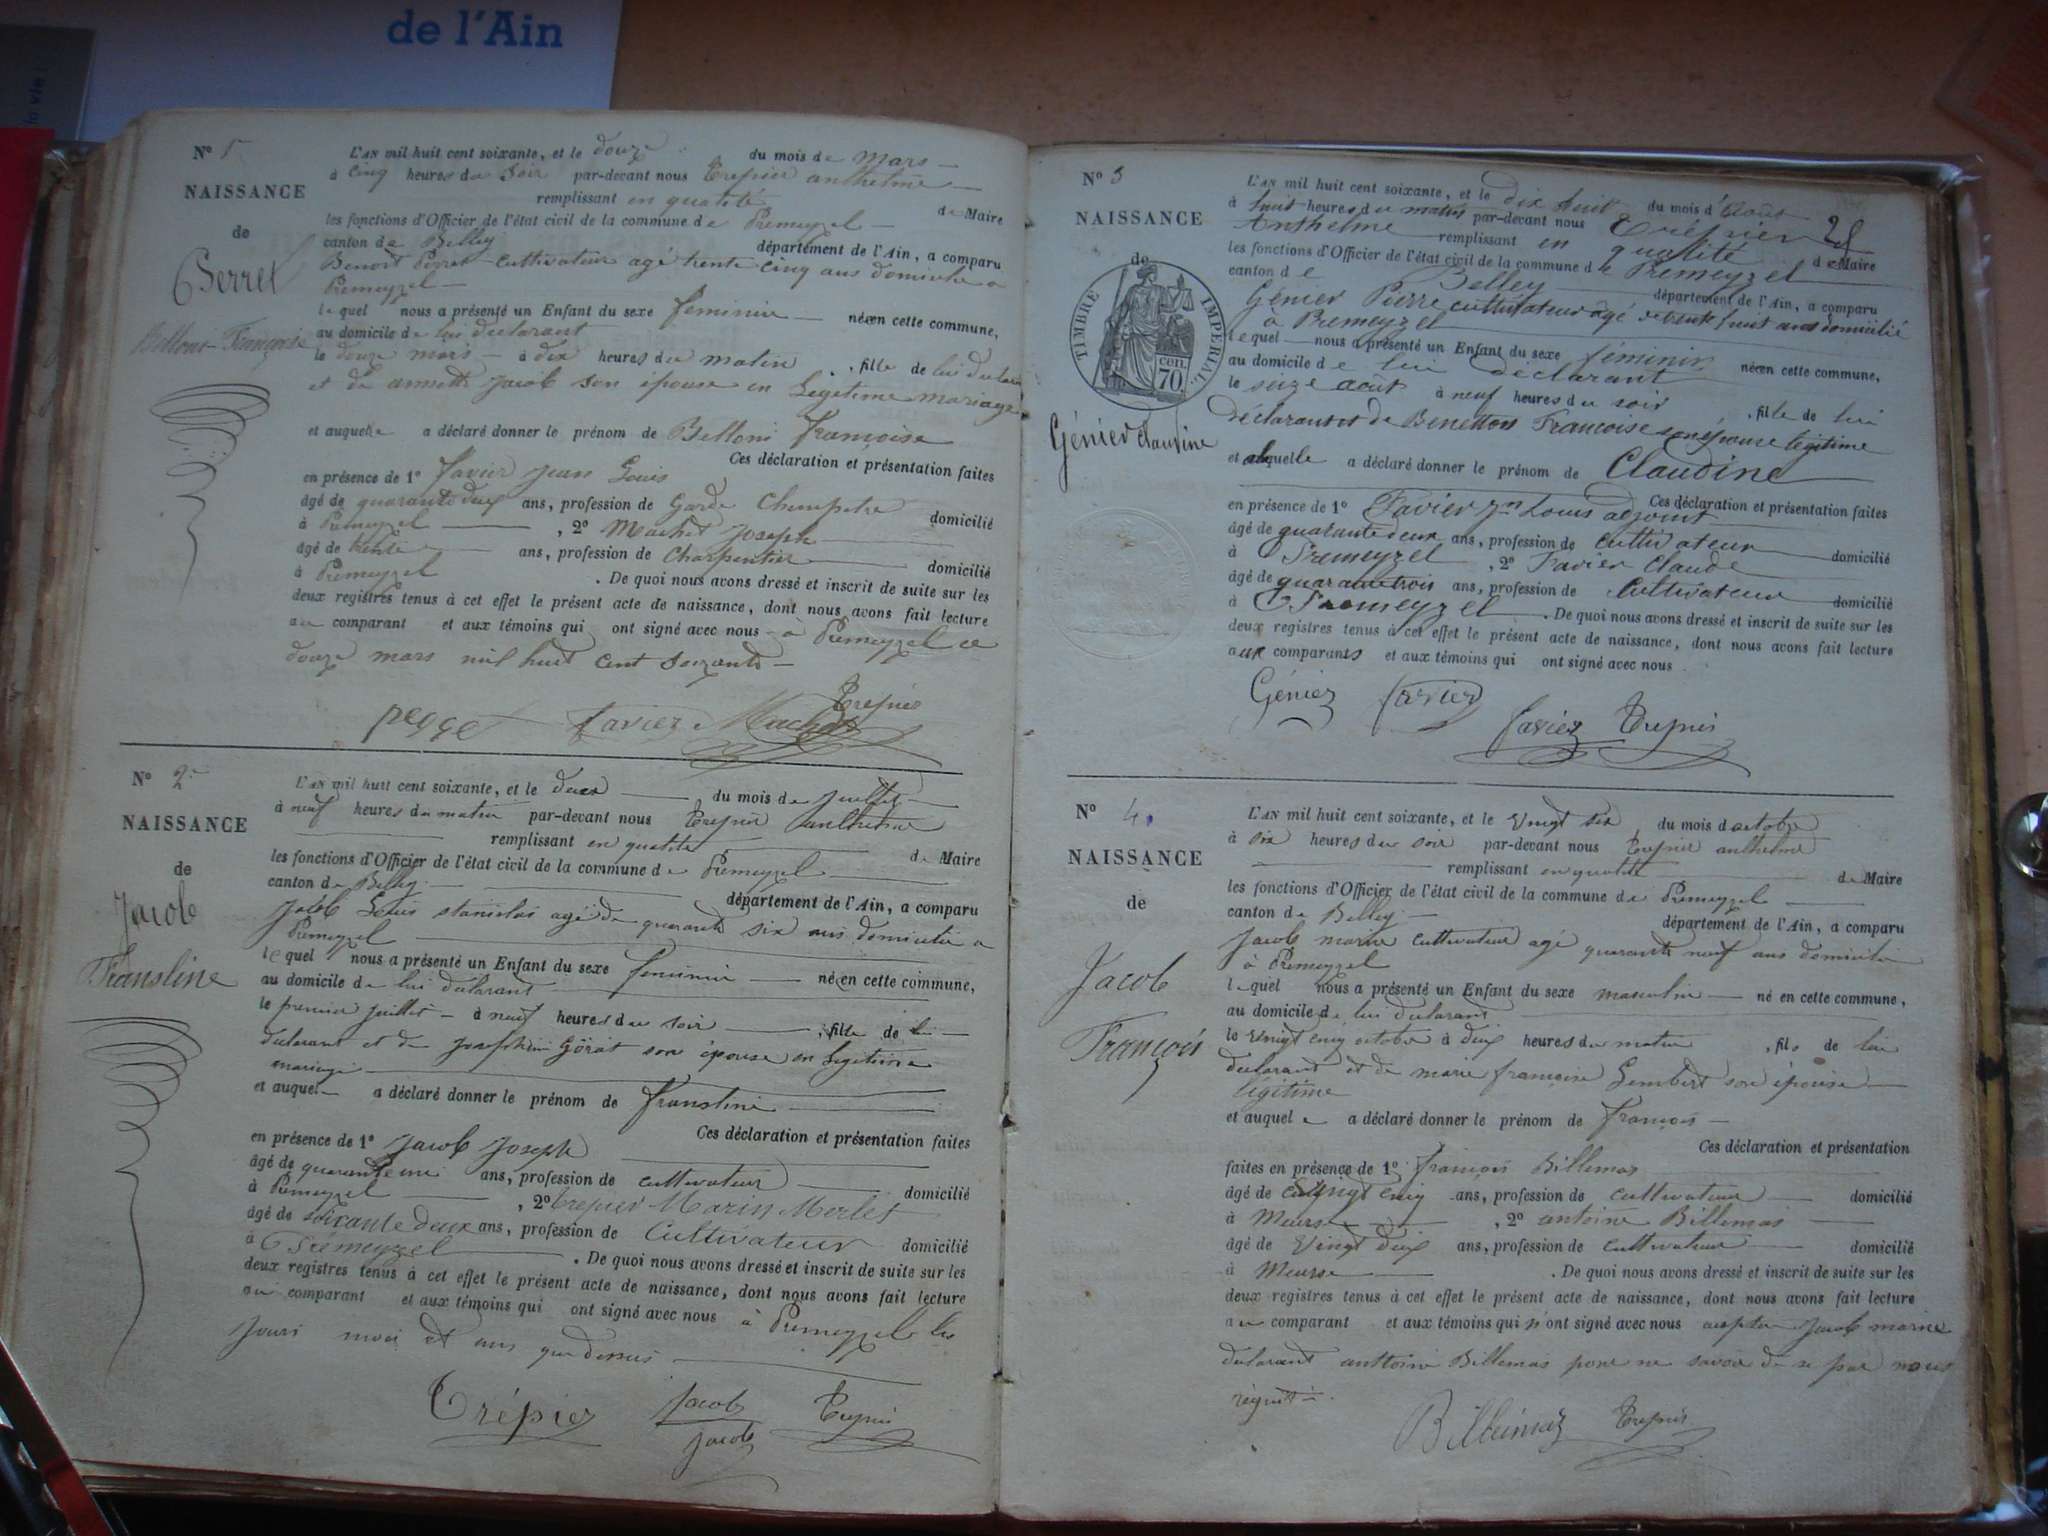 de l'Ain
la vie !
N° 1
NAISSANCE
de
Perret
Françoise
L'AN mil huit cent soixante, et le douze du mois de mars
à cinq heures du soir par-devant nous Trepier anthelme
remplissant en qualité de Maire
les fonctions d'Officier de l'état civil de la commune de Premeyzel
canton de Belley département de l'Ain, a comparu
Benoit cultivateur agé trente cinq ans domicilié a
Premeyzel
lequel nous a présenté un Enfant du sexe féminin née en cette commune,
au domicile de lui declarant
le douze mars à dix heures du matin , fille de lui
et de annette jacob son épouse en Légitime mariage
et auquel a déclaré donner le prénom de françoise
Ces déclaration et présentation faites
en présence de 1° favier jean Louis
âgé de quarante deux ans, profession de Garde Champetre domicilié
à Premeyzel , 2° Machet Joseph
âgé de trente ans, profession de Charpentier domicilié
à Premeyzel . De quoi nous avons dressé et inscrit de suite sur les
deux registres tenus à cet effet le présent acte de naissance, dont nous avons fait lecture
au comparant et aux témoins qui ont signé avec nous à Premeyzel ce
douze mars mil huit cent soixante
favier Machet Trepier
N° 2
NAISSANCE
de
Jacob
Fransline
L'AN mil huit cent soixante, et le deux du mois de juillet
à neuf heures du matin par-devant nous Trepier anthelme
remplissant en qualité de Maire
les fonctions d'Officier de l'état civil de la commune de Premeyzel
canton de Belley département de l'Ain, a comparu
Jacob Louis stanislas agé de quarante six ans domicilié a
Premeyzel
lequel nous a présenté un Enfant du sexe feminin née en cette commune,
au domicile de lui declarant
le premier juillet à neuf heures du soir , fille de lui
declarant et de Josephine son épouse en Legitime
mariage
et auquel a déclaré donner le prénom de franstine
Ces déclaration et présentation faites
en présence de 1° Jacob Joseph
âgé de quarante un ans, profession de cultivateur domicilié
à Premeyzel , 2° Trepier Marin Merlet
âgé de soixante deux ans, profession de Cultivateur domicilié
à Prémeyzel . De quoi nous avons dressé et inscrit de suite sur les
deux registres tenus à cet effet le présent acte de naissance, dont nous avons fait lecture
au comparant et aux témoins qui ont signé avec nous à Premeyzel les
jours moi et ans que dessus
Trépier Jacob Trepier
Jacob
N° 3
NAISSANCE
de
TIMBRE IMPÉRIAL
70 cen.
Génier Claudine
28
L'AN mil huit cent soixante, et le dix huit du mois d'aout
à huit heures du matin par-devant nous Trépier
Anthelme remplissant en qualité de Maire
les fonctions d'Officier de l'état civil de la commune de Premeyzel
canton de Belley département de l'Ain, a comparu
Génier Pierre cultivateur agé de trente huit ans domicilié
à Premeyzel
lequel nous a présenté un Enfant du sexe féminin née en cette commune,
au domicile de lui déclarant
le seize aout à neuf heures du soir , fille de lui
déclarant et de Benetton Francoise son épouse legitime
et a laquelle a déclaré donner le prénom de Claudine
Ces déclaration et présentation faites
en présence de 1° Favier Jn Louis adjoint
âgé de quarante deux ans, profession de cultivateur domicilié
à Premeyzel , 2° Favier Claude
âgé de quarante trois ans, profession de Cultivateur domicilié
à Premeyzel . De quoi nous avons dressé et inscrit de suite sur les
deux registres tenus à cet effet le présent acte de naissance, dont nous avons fait lecture
aux comparants et aux témoins qui ont signé avec nous
Géniez favier
faviez Trepier
N° 4
NAISSANCE
de
Jacob
François
L'AN mil huit cent soixante, et le vingt six du mois d'octobre
à six heures du soir par-devant nous Trepier anthelme
remplissant en qualité de Maire
les fonctions d'Officier de l'état civil de la commune de Premeyzel
canton de Belley département de l'Ain, a comparu
Jacob marin cultivateur agé quarante neuf ans domicilié
à Premeyzel
lequel nous a présenté un Enfant du sexe masculin né en cette commune,
au domicile de lui declarant
le vingt cinq octobre à dix heures du matin , fils de lui
declarant et de marie françoise Lembert son épouse
légitime
et auquel a déclaré donner le prénom de françois
Ces déclaration et présentation
faites en présence de 1° françois Billemas
âgé de vingt cinq ans, profession de cultivateur domicilié
à Meurse , 2° antoine Billemas
âgé de vingt dix ans, profession de cultivateur domicilié
à Meurse . De quoi nous avons dressé et inscrit de suite sur les
deux registres tenus à cet effet le présent acte de naissance, dont nous avons fait lecture
au comparant et aux témoins qui n'ont signé avec nous Jacob marin
declarant anttoine Billemas pour ne savoir de ce par nous
Trepier